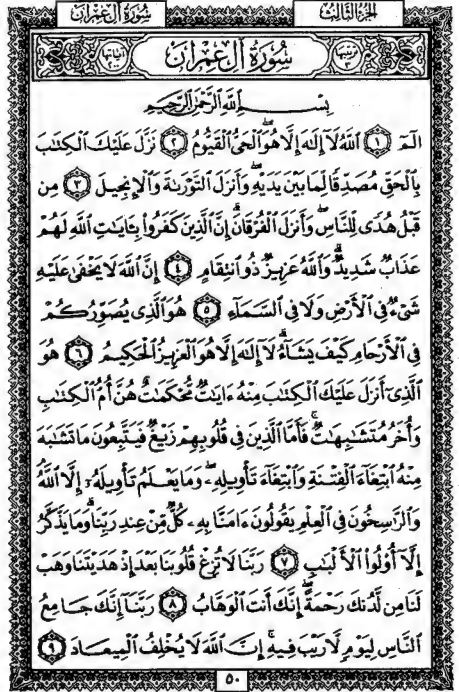 سُورَةُ آلِ عِمْرَانَ الجزء الثالث
ترتيبها ٣ سُورَةُ آلِ عِمْرَانَ آياتها ٢٠٠
بِسْمِ اللَّهِ الرَّحْمَٰنِ الرَّحِيمِ
الٓمٓ ١ ٱللَّهُ لَآ إِلَٰهَ إِلَّا هُوَ ٱلْحَىُّ ٱلْقَيُّومُ ٢ نَزَّلَ عَلَيْكَ ٱلْكِتَٰبَ
بِٱلْحَقِّ مُصَدِّقًا لِّمَا بَيْنَ يَدَيْهِ وَأَنزَلَ ٱلتَّوْرَىٰةَ وَٱلْإِنجِيلَ ٣ مِن
قَبْلُ هُدًى لِّلنَّاسِ وَأَنزَلَ ٱلْفُرْقَانَ ۗ إِنَّ ٱلَّذِينَ كَفَرُوا۟ بِـَٔايَٰتِ ٱللَّهِ لَهُمْ
عَذَابٌ شَدِيدٌ ۗ وَٱللَّهُ عَزِيزٌ ذُو ٱنتِقَامٍ ٤ إِنَّ ٱللَّهَ لَا يَخْفَىٰ عَلَيْهِ
شَىْءٌ فِى ٱلْأَرْضِ وَلَا فِى ٱلسَّمَآءِ ٥ هُوَ ٱلَّذِى يُصَوِّرُكُمْ
فِى ٱلْأَرْحَامِ كَيْفَ يَشَآءُ ۚ لَآ إِلَٰهَ إِلَّا هُوَ ٱلْعَزِيزُ ٱلْحَكِيمُ ٦ هُوَ
ٱلَّذِىٓ أَنزَلَ عَلَيْكَ ٱلْكِتَٰبَ مِنْهُ ءَايَٰتٌ مُّحْكَمَٰتٌ هُنَّ أُمُّ ٱلْكِتَٰبِ
وَأُخَرُ مُتَشَٰبِهَٰتٌ ۖ فَأَمَّا ٱلَّذِينَ فِى قُلُوبِهِمْ زَيْغٌ فَيَتَّبِعُونَ مَا تَشَٰبَهَ
مِنْهُ ٱبْتِغَآءَ ٱلْفِتْنَةِ وَٱبْتِغَآءَ تَأْوِيلِهِۦ ۗ وَمَا يَعْلَمُ تَأْوِيلَهُۥٓ إِلَّا ٱللَّهُ ۗ
وَٱلرَّٰسِخُونَ فِى ٱلْعِلْمِ يَقُولُونَ ءَامَنَّا بِهِۦ كُلٌّ مِّنْ عِندِ رَبِّنَا ۗ وَمَا يَذَّكَّرُ
إِلَّآ أُو۟لُوا۟ ٱلْأَلْبَٰبِ ٧ رَبَّنَا لَا تُزِغْ قُلُوبَنَا بَعْدَ إِذْ هَدَيْتَنَا وَهَبْ
لَنَا مِن لَّدُنكَ رَحْمَةً ۚ إِنَّكَ أَنتَ ٱلْوَهَّابُ ٨ رَبَّنَآ إِنَّكَ جَامِعُ
ٱلنَّاسِ لِيَوْمٍ لَّا رَيْبَ فِيهِ ۚ إِنَّ ٱللَّهَ لَا يُخْلِفُ ٱلْمِيعَادَ ٩
٥٠